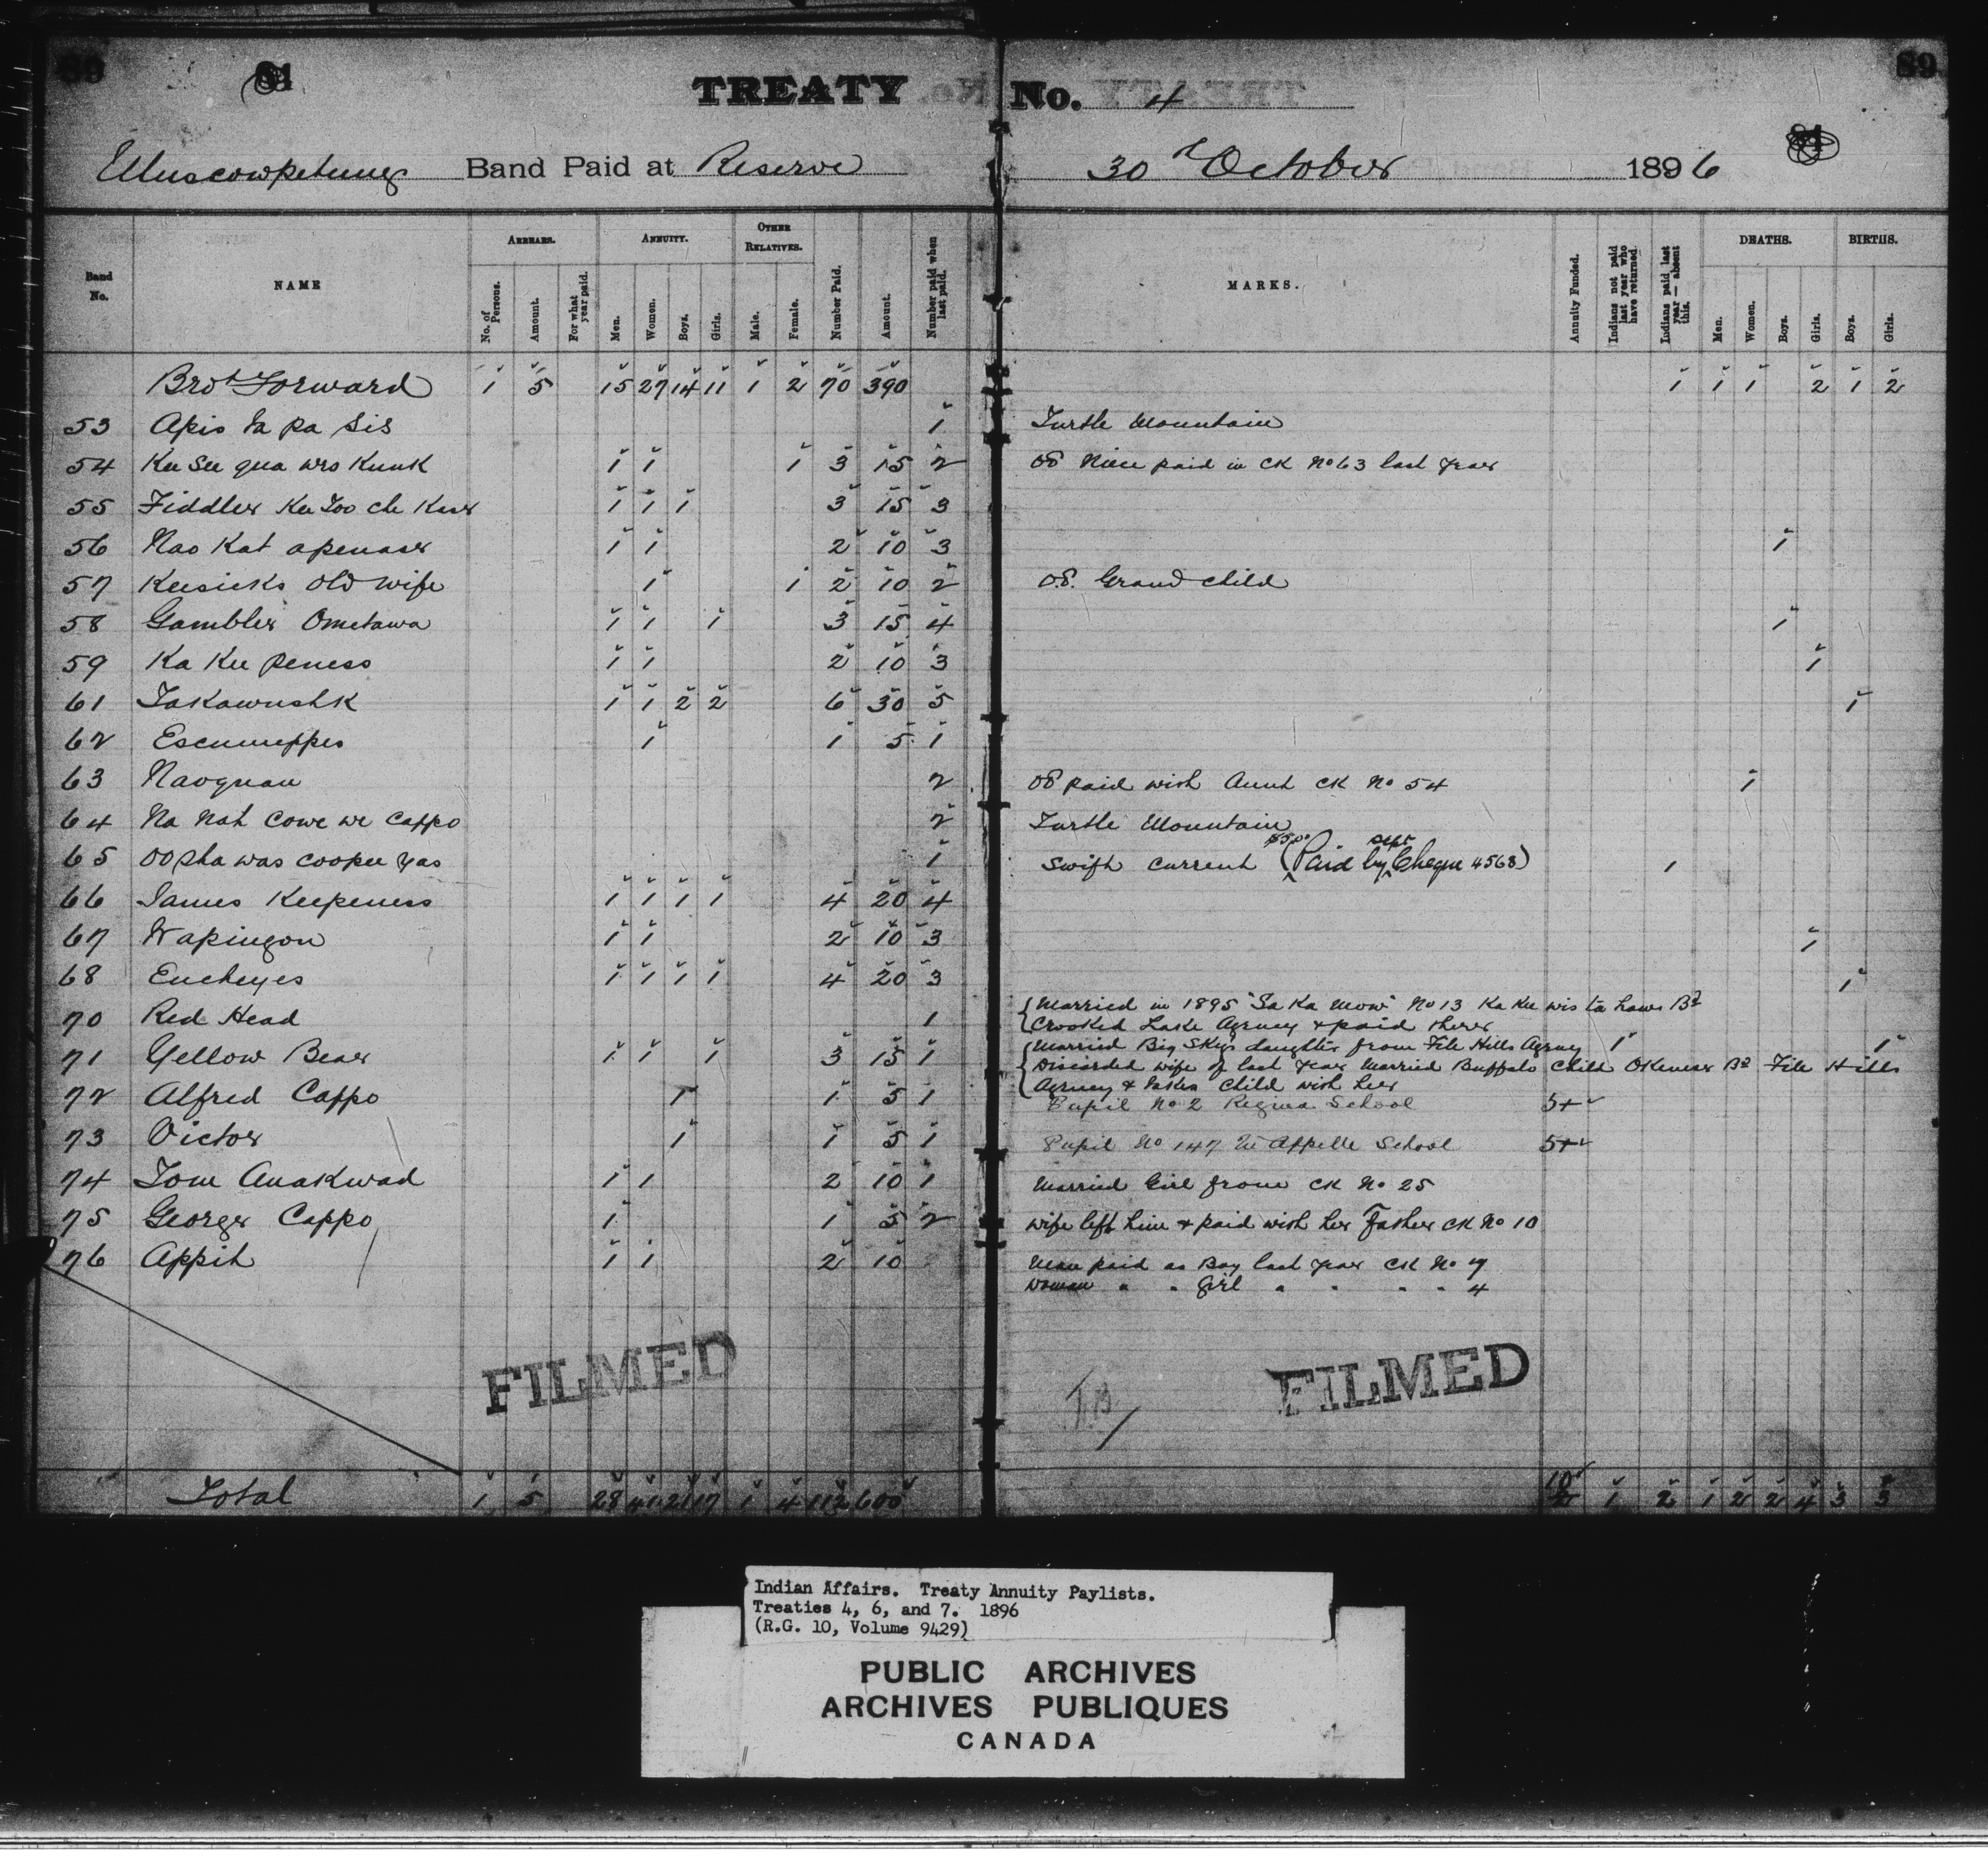 89 81 TREATY No. 4 89
81
Muscowpetung Band Paid at Reserve 30th October 1896
ARREARS. ANNUITY. OTHER RELATIVES. DEATHS. BIRTHS.
Band No. NAME No. of Persons. Amount. For what year paid. Men. Women. Boys. Girls. Male. Female. Number Paid. Amount. Number paid when last paid. MARKS. Annuity Funded. Indians not paid last year who have returned. Indians paid last year — absent this. Men. Women. Boys. Girls. Boys. Girls.
Brot Forward 1 5 15 27 14 11 1 2 70 390 1 1 1 2 1 2
53 Apis ta pa sis 1 Turtle Mountain
54 Kee See qua wes Kunk 1 1 1 3 15 2 08 Niece paid in CK No 63 last year
55 Fiddler Kee Too che Keer 1 1 1 3 15 3
56 Nao Kat apenase 1 1 2 10 3 1
57 Keesicks Old Wife 1 1 2 10 2 08. Grand child
58 Gambler Ometawa 1 1 1 3 15 4 1
59 Ka Kee peness 1 1 2 10 3 1
61 Takawushk 1 1 2 2 6 30 5 1
62 Escumeppes 1 1 5 1
63 Naoquan 2 08 paid with Aunt CK No 54 1
64 Na Nat Cowe we Cappo 2 Turtle Mountain
65 OO sha was cookee yas 1 Swift Current (Paid by Sept Cheque 4568) 1
66 James Keepeness 1 1 1 1 4 20 4
67 Wapingon 1 1 2 10 3 1
68 Eucheyes 1 1 1 1 4 20 3 1
70 Red Head 1 Married in 1895 "Sa Ka Mow" No 13 Ka Kee wis ta haws Bd
Crooked Lake Agency & paid there
71 Yellow Bear 1 1 1 3 15 1 Married Big Sky's daughter from File Hills Agency 1 1
Discarded wife of last year Married Buffalo Child Okeness Bd File Hills
Agency & takes Child with her
72 Alfred Cappo 1 1 5 1 Pupil No 2 Regina School 5+
73 Victor 1 1 5 1 Pupil No 147 Qu'Appelle School 5+
74 Tom Anakwad 1 1 2 10 1 Married Girl from CK No 25
75 George Cappo 1 1 5 2 wife left him & paid with her Father CK No 10
76 Appit 1 1 2 10 Man paid as Boy last year CK No 7
Woman " " Girl " " " " 4
FILMED FILMED
Total 1 5 28 41 21 17 1 4 112 600 10 1 2 1 2 2 4 3 3
Indian Affairs. Treaty Annuity Paylists.
Treaties 4, 6, and 7. 1896
(R.G. 10, Volume 9429)
PUBLIC ARCHIVES
ARCHIVES PUBLIQUES
CANADA